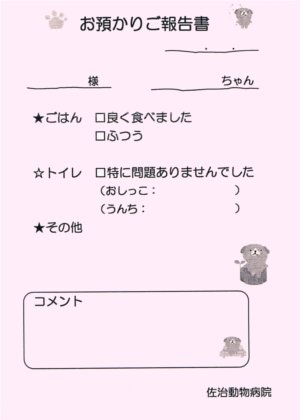 お預かりご報告書
． ．
様 ちゃん
★ごはん □良く食べました
□ふつう
☆トイレ □特に問題ありませんでした
（おしっこ： ）
（うんち： ）
★その他
コメント
佐治動物病院